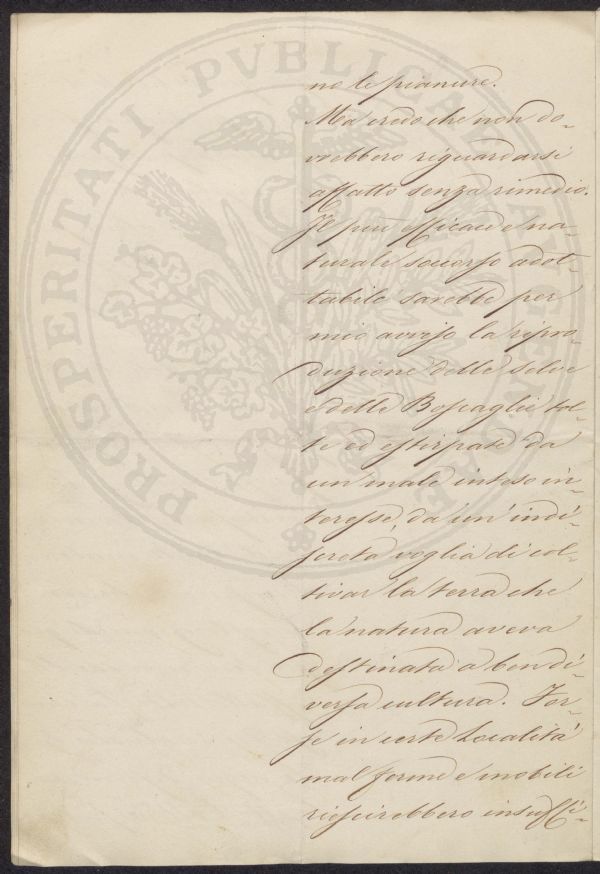 PROSPERITATI PVBLICAE AVGENDAE
no le pianure.
Ma credo che non do-
vrebbero riguardarsi
affatto senza rimedio.
Il più efficace e na-
turale soccorso adot-
tabile sarebbe per
mio avviso la ripro-
duzione delle selve
e delle Boscaglie tol-
te ed estirpate da
un male inteso in-
teresse, da un' indi-
screta voglia di col-
tivar la terra che
la natura aveva
destinata a ben di-
versa cultura. For-
se in certe Località
mal ferme e mobili
riescirebbero insuffi-